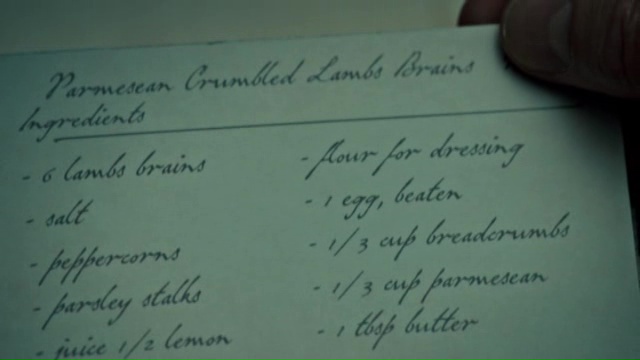 Parmesean Crumbled Lambs Brains
Ingredients
- 6 lambs brains
- salt
- peppercorns
- parsley stalks
- juice 1/2 lemon
- flour for dressing
- 1 egg, beaten
- 1/3 cup breadcrumbs
- 1/3 cup parmesean
- 1 tbsp butter